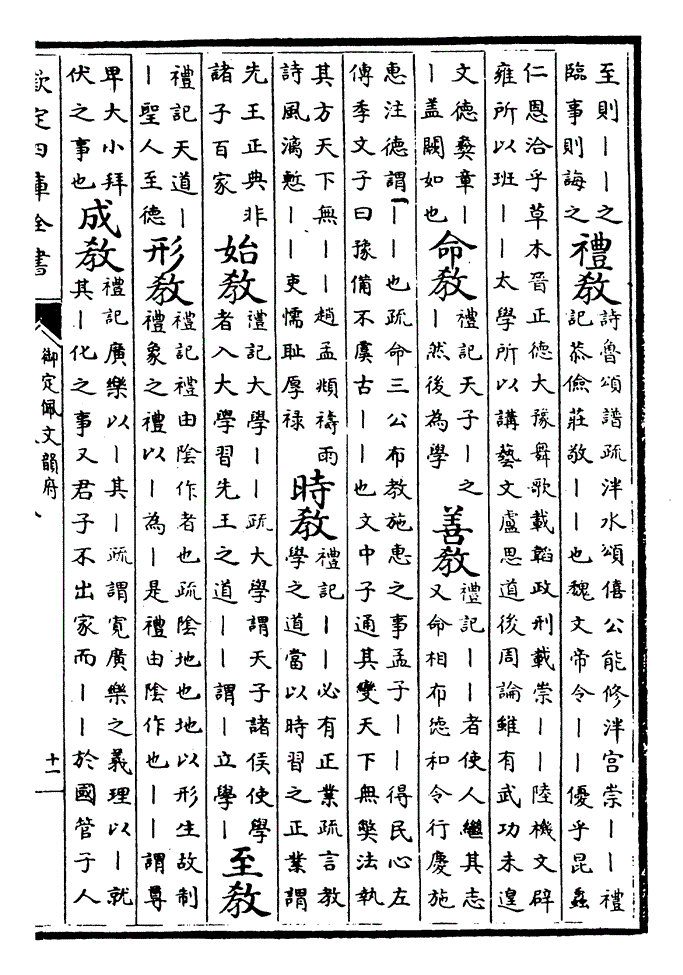 至則｜｜之
臨事則誨之
禮教
詩魯頌譜疏泮水頌僖公能修泮宫崇｜｜禮
記恭儉莊敬｜｜也魏文帝令｜｜優乎昆蟲
仁恩洽乎草木晉正德大豫舞歌載韜政刑載崇｜｜陸機文辟
雍所以班｜｜太學所以講藝文盧思道後周論雖有武功未遑
文德彝章｜
｜盖闕如也
命教
禮記天子｜之
｜然後為學
善教
禮記｜｜者使人繼其志
又命相布德和令行慶施
惠注德謂｜｜也疏命三公布教施惠之事孟子｜｜｜得民心左
傳季文子曰豫備不虞古｜｜也文中子通其變天下無弊法執
其方天下無｜｜趙孟頫禱雨
詩風漓慙｜｜吏懦耻厚禄
時教
禮記｜｜必有正業疏言教
學之道當以時習之正業謂
先王正典非
諸子百家
始教
禮記大學｜｜疏大學謂天子諸侯使學
者入大學習先王之道｜｜謂｜立學｜
至教
禮記天道｜
｜聖人至德
形教
禮記禮由陰作者也疏陰地也地以形生故制
禮象之禮以｜為｜是禮由陰作也｜｜謂尊
卑大小拜
伏之事也
成教
禮記廣樂以｜其｜疏謂寛廣樂之義理以｜就
其｜化之事又君子不出家而｜｜於國管子人
欽定四庫全書
御定佩文韻府
十二